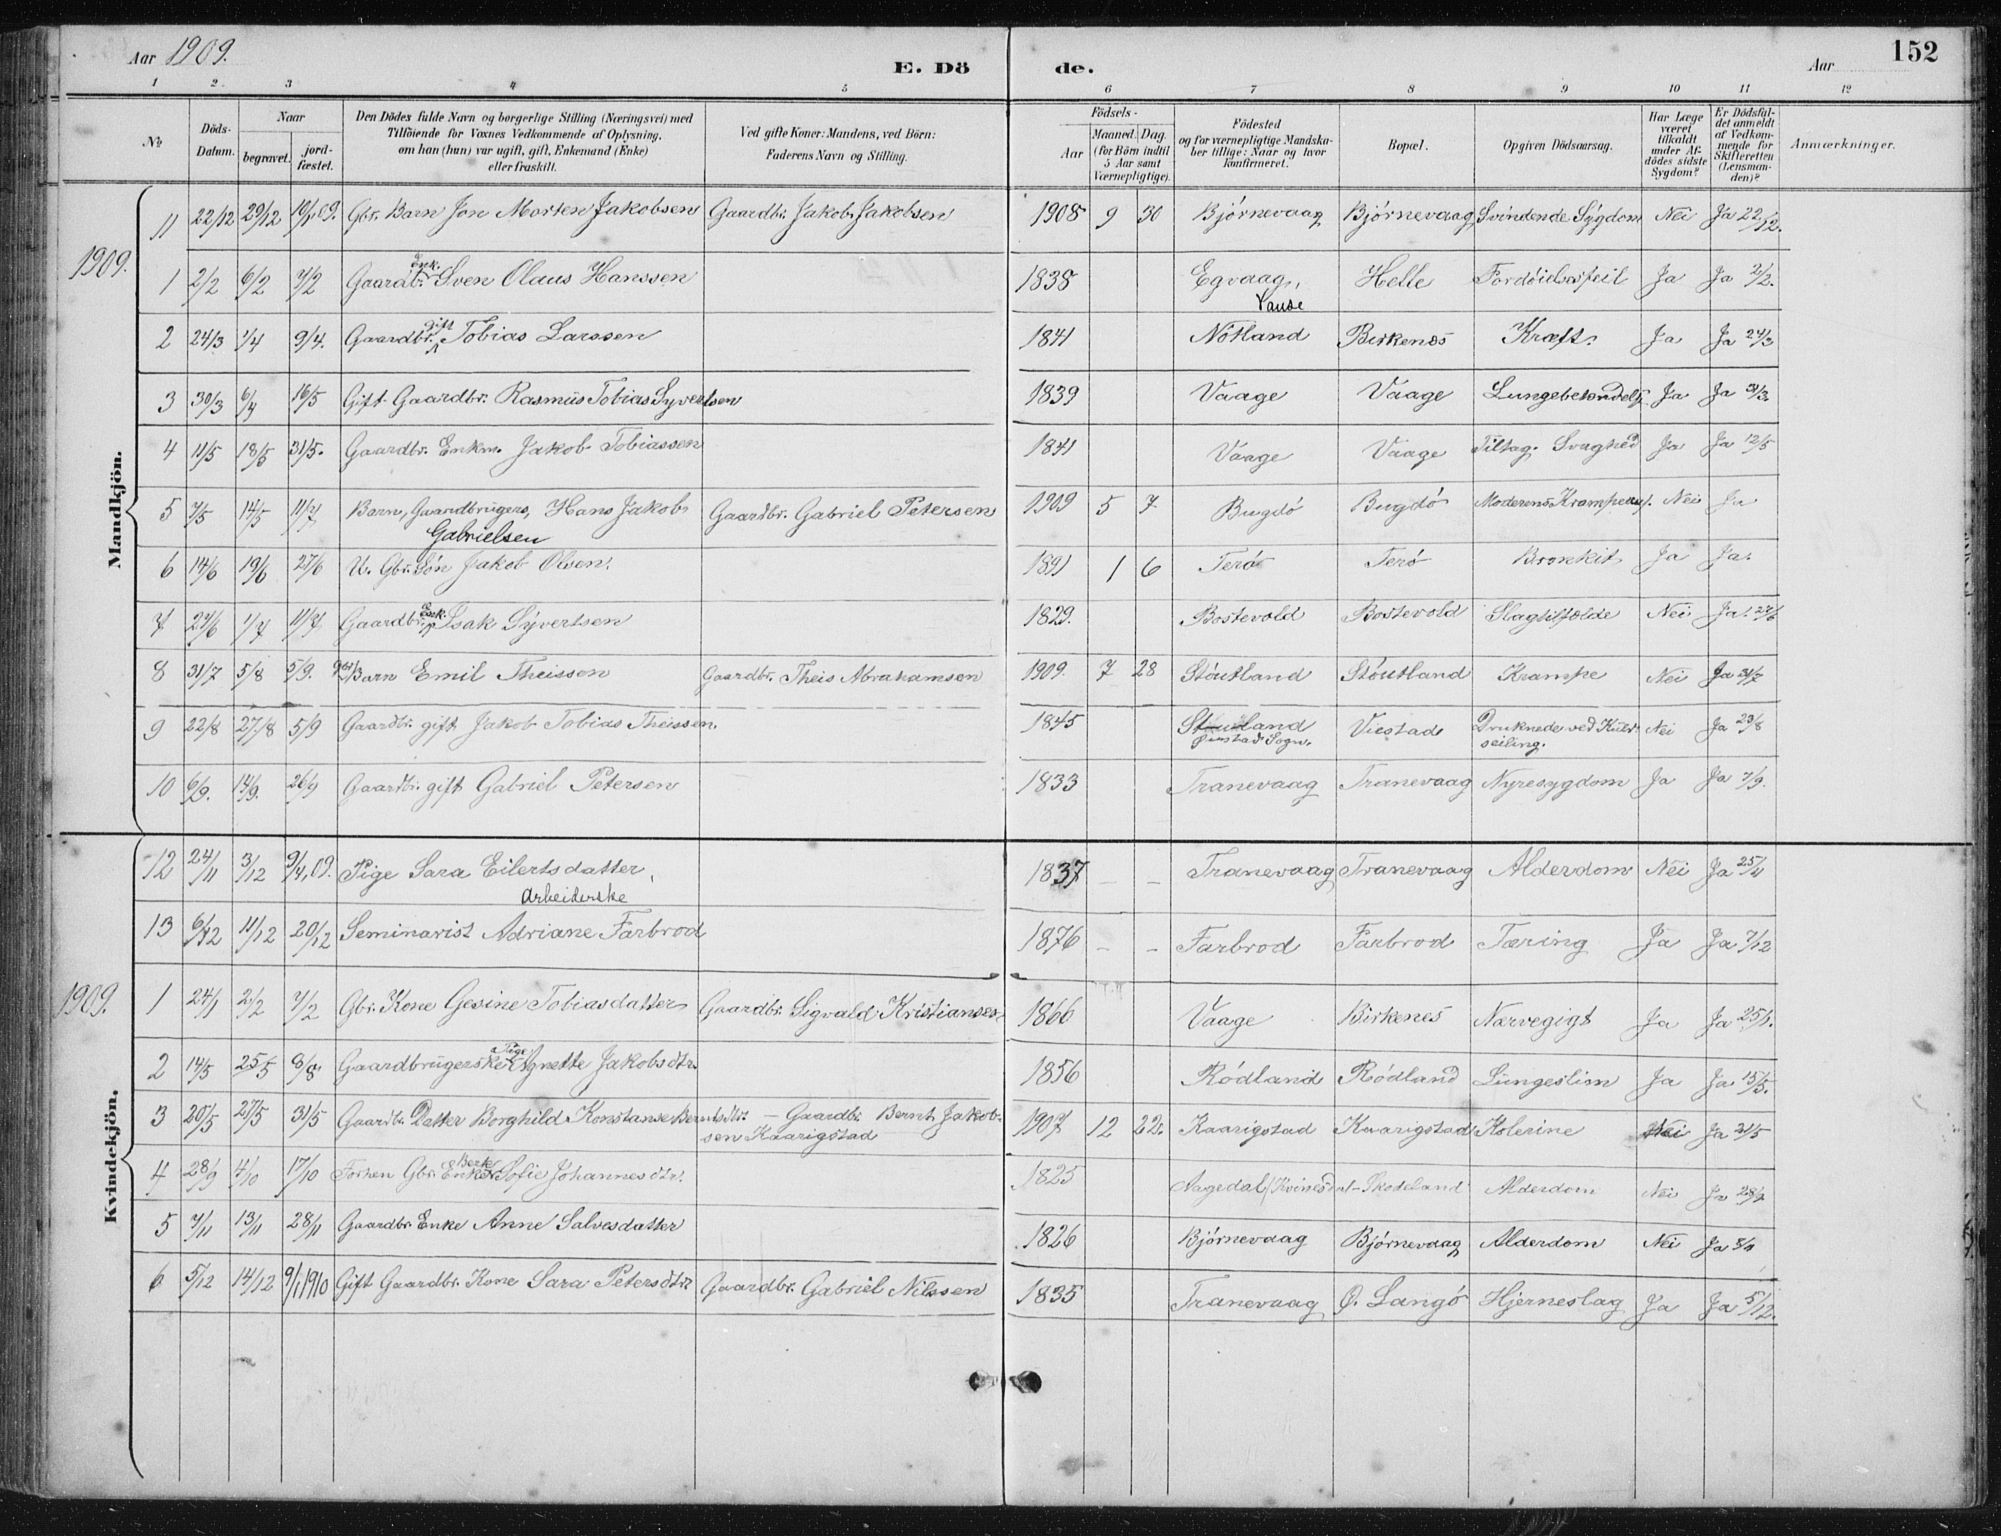 Aar 1909. E. Dö de. Aar 152
1 2 3 4 5 6 7 8 9 10 11 12
№ Döds-Datum. Naar begravet. jordfæstet. Den Dödes fulde Navn og borgerlige Stilling (Næringsvei) med Tilföiende for Voxnes Vedkommende af Oplysning, om han (hun) var ugift, gift, Enkemand (Enke) eller fraskilt. Ved gifte Koner: Mandens, ved Börn: Faderens Navn og Stilling. Födsels- Aar Maaned. Dag. (for Börn indtil 5 Aar samt Værnepligtige). Födested og for værnepligtige Mandskaber tillige: Naar og hvor konfirmeret. Bopæl. Opgiven Dödsaarsag. Har Læge været tilkaldt under Afdödes sidste Sygdom? Er Dödsfaldet anmeldt af Vedkommende for Skifteretten (Lensmanden)? Anmærkninger.
Mandkjön.
11 22/12 29/12 10/1 09. Gbr. Barn Jon Morten Jakobsen Gaardbr. Jakob Jakobsen 1908 9 30 Bjørnevaag Bjørnevaag Svindende Sygdom Nei Ja 22/12.
1909.
1 2/2 6/2 7/2 Gaardbr. Enk. Sven Olaus Hanssen 1838 Egvaag, Helle Fordøielsesfeil Ja Ja 2/2.
2 24/3 1/4 9/4. Gaardbr. gift Tobias Larssen 1841 Vause Nøtland Birkenes Kræft. Ja Ja 24/3
3 30/3 6/4 16/5 Gift Gaardbr. Rasmus Tobias Syvertsen 1839 Vaage Vaage Lungebetændelse Ja Ja 31/3
4 11/5 18/5 31/5. Gaardbr. Enkm. Jakob Tobiassen 1841 Vaage Vaage Tiltag. Svaghed Ja Ja 12/5
5 7/5 14/5 11/7 Barn, Gaardbrugers, Hans Jakob Gabrielsen Gaardbr. Gabriel Petersen 1909 5 7 Bugdø Bugdø Moderens Nei Ja
6 14/6 19/6 27/6 U. Gbr. Søn Jakob Olsen. 1891 1 6 Terø Terø Bronkit Ja Ja.
7 27/6 1/7 11/7 Gaardbr. Enk. Isak Syvertsen 1829. Bostevold Bostevold Slagtilfælde Nei Ja. 27/6
8 31/7 5/8 5/9. Gbr. Barn Emil Theissen Gaardbr. Theis Abrahamsen 1909. 7 28 Støutland Støutland Krampe Nei Ja 31/7
9 22/8 27/8 5/9 Gaardbr. gift Jakob Tobias Theissen. 1845 Støutland Sogn. Viestad Druknede ved Kuldseiling. Nei Ja 23/8
10 6/9. 14/9. 26/9 Gaardbr. gift Gabriel Petersen 1833 Tranevaag Tranevaag Nyresygdom Ja Ja 7/9.
Kvindekjön.
12 24/11 3/12 9/4, 09. Pige Sara Eilertsdatter, Arbeiderske 1837 – – Tranevaag Tranevaag Alderdom Nei Ja 25/11
13 6/12 11/12 20/12 Seminarist Adriane Farbrod 1876 – – Farbrod Farbrod Tæring Ja Ja 7/12
1909.
1 24/1 2/2 7/2 Gbr. Kone Gesine Tobiasdatter Gaardbr. Sigvald Kristiansen 1866 Vaage Birkenes Nervegigt Ja Ja 25/1.
2 14/5 25/5 8/8 Gaardbrugerske Pige Agnette Jakobsdtr. 1856 Rødland Rødland Lungeslim Ja Ja 15/5.
3 20/5 27/5 31/5 Gaardbr. Datter Borghild Konstanse Berntsdtr. – Gaardbr. Bernt Jakobsen Kaarigstad 1907 12 22. Kaarigstad Kaarigstad Kolerine Nei Ja 21/5
4 28/9 4/10 17/10 Forhen Gbr. Enke Berte Sofie Johannesdtr. 1825 Aagedal/Kvinesdal – Skodeland Alderdom Nei Ja 28/9
5 7/11 13/11 28/11 Gaardbr. Enke Anne Salvesdatter 1826 Bjørnevaag Bjørnevaag Alderdom Nei Ja 8/11
6 5/12 14/12 9/1 1910 Gift Gaardbr. Kone Sara Petersdtr. Gaardbr. Gabriel Nilssen 1835 Tranevaag Ø. Langø Hjerneslag Ja Ja 5/12.